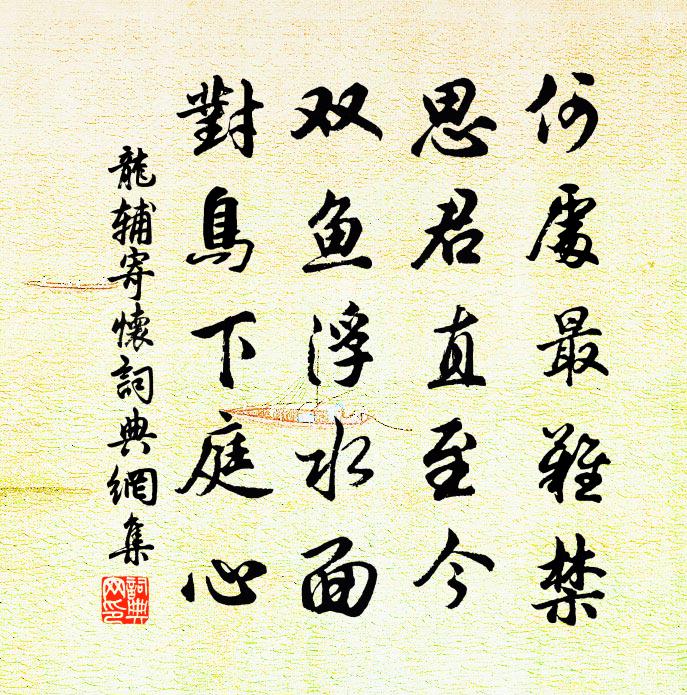 何處最難禁
思君直至今
双鱼浮水面
對鳥下庭心
龍辅寄懷詞典網集
詞典
网印